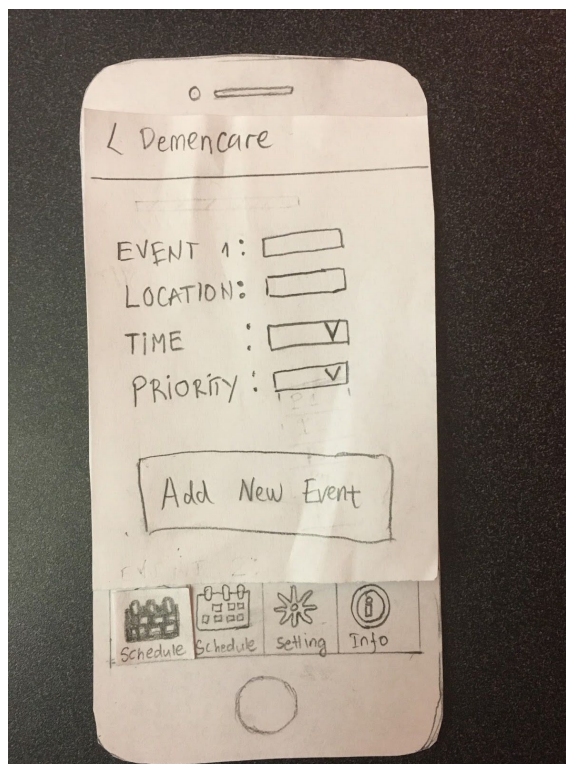 < Demencare
EVENT 1:
LOCATION:
TIME :
PRIORITY :
Add New Event
Schedule Schedule Setting Info